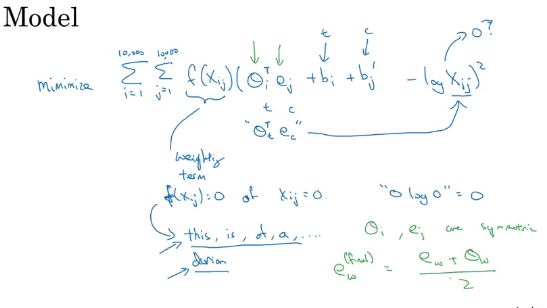 Model
t c → 0?
minimize 10,000 Σ i=1 10,000 Σ j=1 f(X_ij) (θ_i^T e_j + b_i + b_j' - log X_ij)^2
t c
"θ_t^T e_c"
weighting
term
f(X_ij)=0 if X_ij=0. "0 log 0" = 0
this, is, of, a, .... θ_i, e_j are symmetric
durian e_w^(final) = (e_w + θ_w)/2